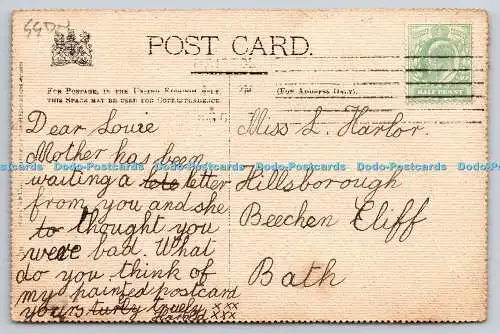 SSDof
POST CARD.
FOR POSTAGE, IN THE UNITED KINGDOM ONLY,
THIS SPACE MAY BE USED FOR CORRESPONDENCE.
(FOR ADDRESS ONLY.)
HALF PENNY
Dear Louie
Mother has been
waiting a letter
from you and she
to thought you
were bad. What
do you think of
my painted postcard
yours truly xxx
xxx
Miss L. Harlor.
Hillsborough
Beechen Cliff
Bath
Dodo-Postcards Dodo-Postcards Dodo-Postcards Dodo-Postcards Dodo-Postcards